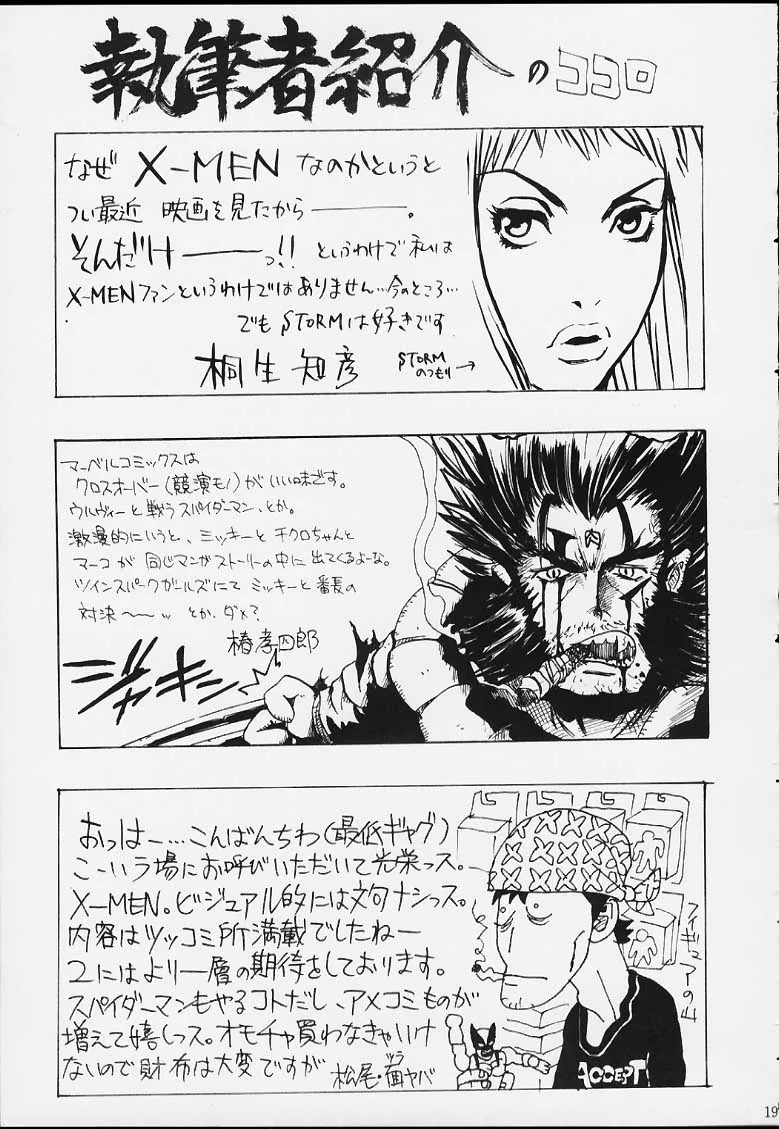 執筆者紹介 の ココロ
なぜ X-MEN なのかというと
つい最近 映画を見たから―――。
そんだけ――っ!! というわけで私は
X-MENファンというわけではありません…今のところ…
でも STORMは好きです
桐生知彦
STORM
のつもり→
マーベルコミックスは
クロスオーバー(競演モノ)がいい味です。
ウルヴィーと戦うスパイダーマン、とか。
激漫的にいうと、ミッキーとチクロちゃんと
マーコが同じマンガストーリーの中に出てくるよーな。
ツインスパークガールズにてミッキーと番長の
対決~~〃 とか、ダメ?
椿孝四郎
ジャキン
おっはー…こんばんちわ(最低ギャグ)
こーいう場にお呼びいただいて光栄っス。
X-MEN。ビジュアル的には文句ナシっス。
内容はツッコミ所満載でしたねー
2にはより一層の期待をしております。
スパイダーマンもやるコトだし、アメコミものが
増えて嬉しっス。オモチャ買わなきゃいけ
ないので財布は大変ですが
松尾・面ヤバ
ヅラ
フィギュアの山
ACCEPT
19